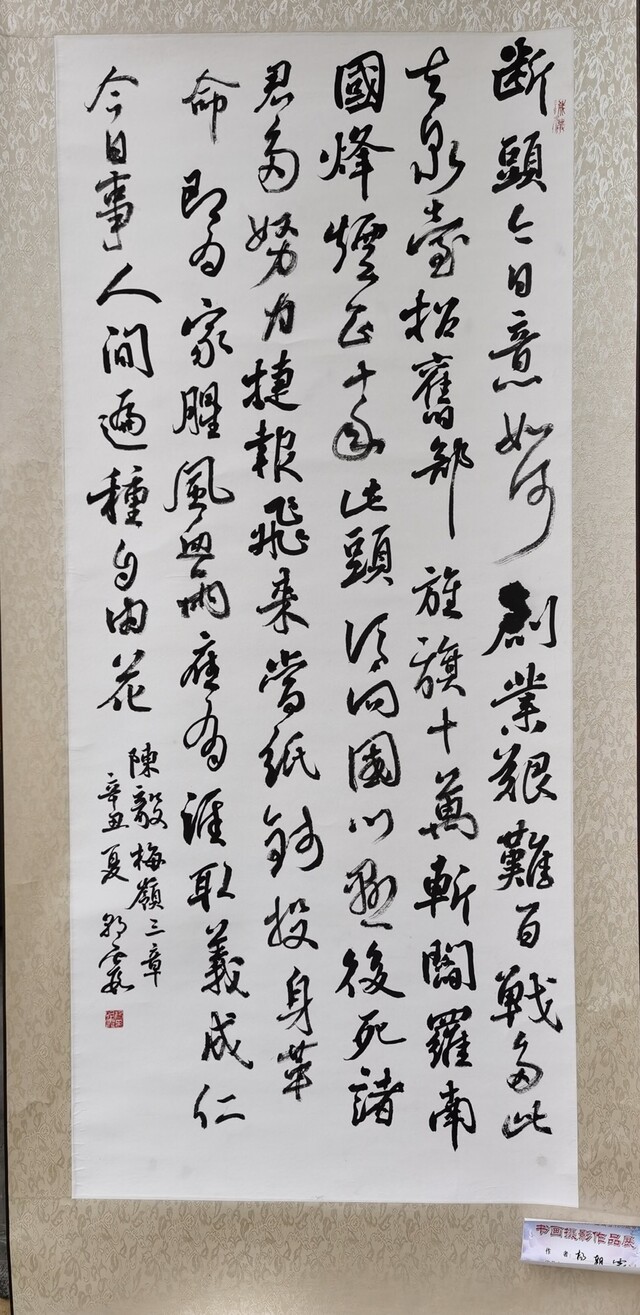 断頭今日意如何創業艱難百戰多此
去泉臺招舊部旌旗十萬斬閻羅南
國烽煙正十年此頭須向國門懸後死諸
君多努力捷報飛來當紙錢投身革
命即为家腥風血雨應有涯取義成仁
今日事人間遍種自由花
陳毅梅嶺三章
辛丑夏朝霞
书画摄影作品展
作者 杨朝